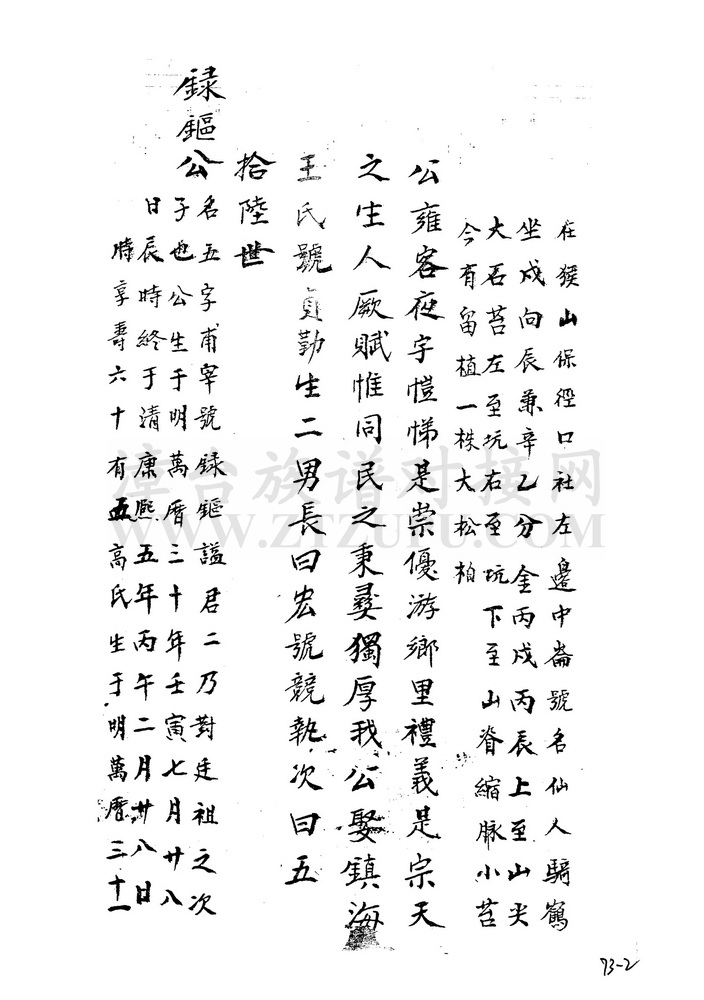 在猴山保徑口社左邊中崙號名仙人騎鶴
坐戍向辰兼辛乙分金丙戍丙辰上至山尖
大石苔左至坑右至坑下至山脊縮脉小苔
今有留植一株大松柏
公雍容夜字愷悌是崇優游鄉里禮義是宗天
之生人厥賦惟同民之秉彝獨厚我公娶鎮海
王氏號貞勤生二男長曰宏號競執次曰五
拾陸世
録鏂公
名五字甫宰號録鏂謚君二乃對廷祖之次
子也公生于明萬曆三十年壬寅七月廿八
日辰時終于清康熙五年丙午二月廿八日
時享壽六十有五高氏生于明萬曆三十一
漳台族谱对接网
WWW.ZTZUPU.COM
93-2